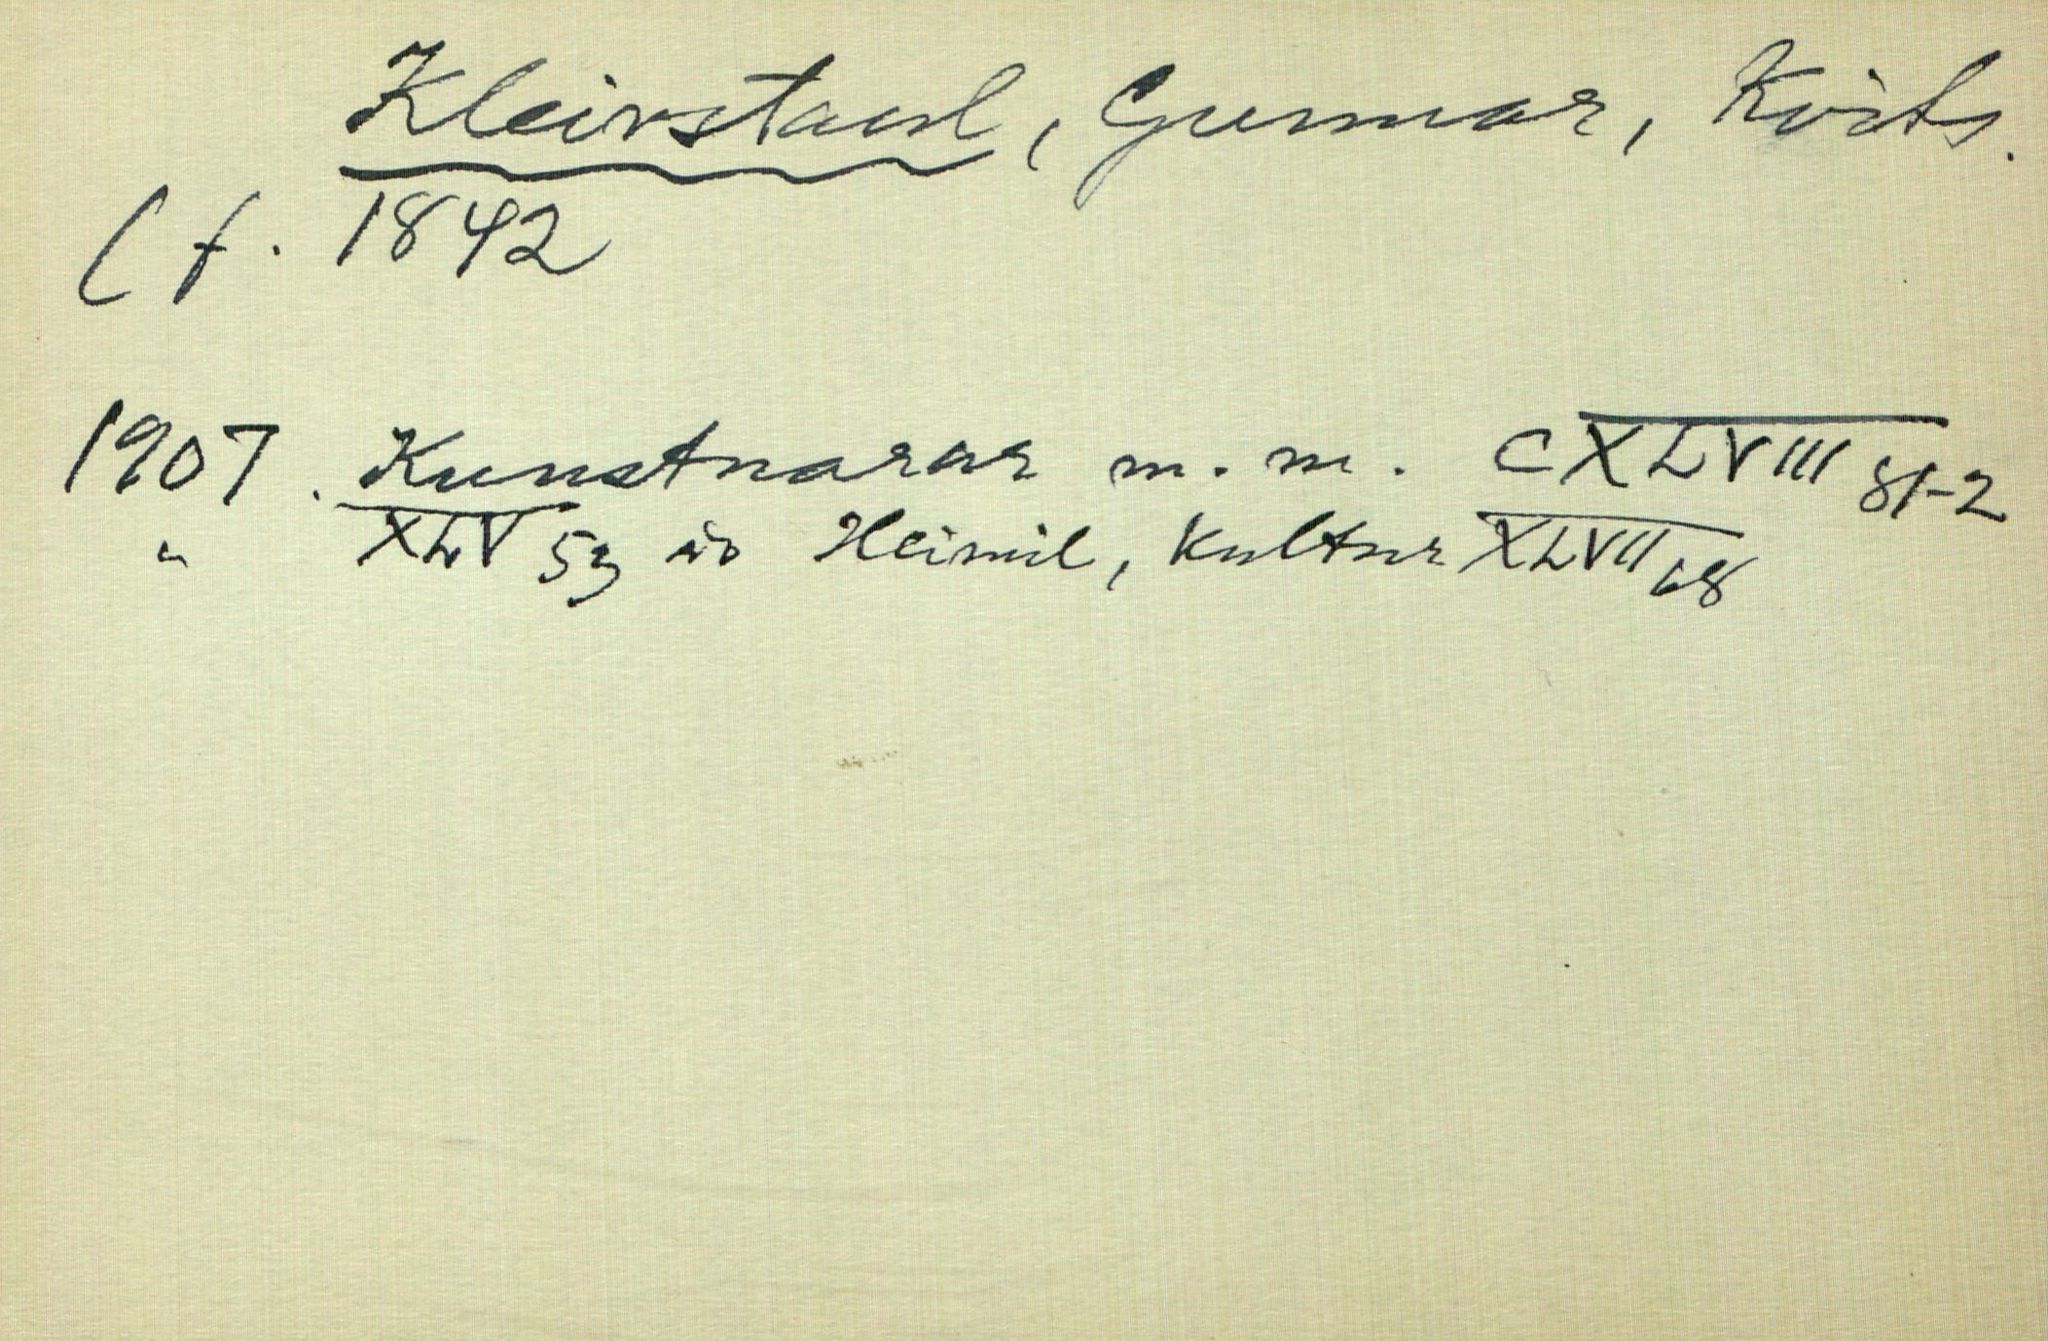 Kleivstaul, Gunnar, Kvits.
(f. 1842
1907. Kunstnarar m. m. CXLVIII 81-2
" XLV 53 Heimil, Kultur XLVII 68